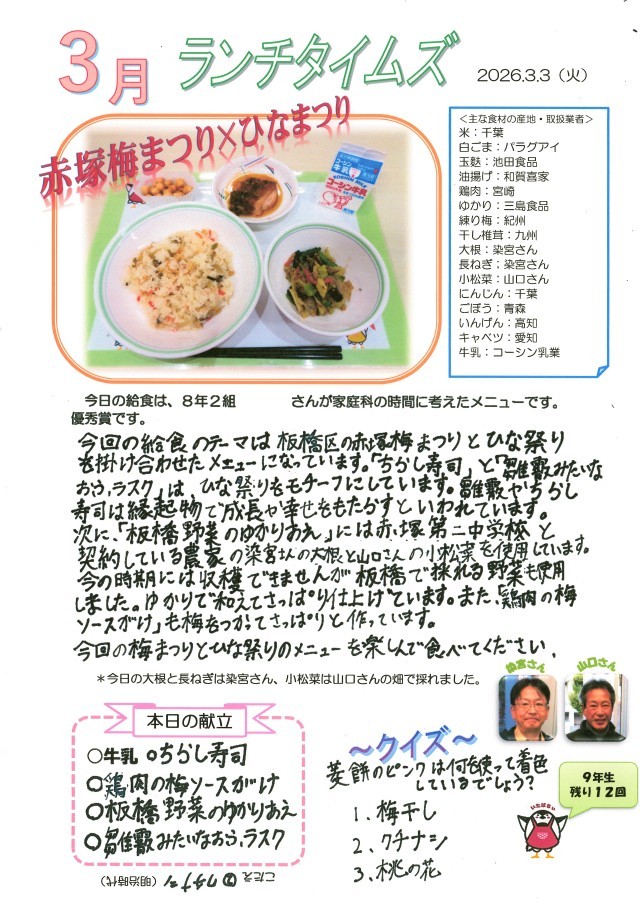 3月 ランチタイムズ 2026.3.3(火)
赤塚梅まつり×ひなまつり
<主な食材の産地・取扱業者>
米:千葉
白ごま:パラグアイ
玉麩:池田食品
油揚げ:和賀喜家
鶏肉:宮崎
ゆかり:三島食品
練り梅:紀州
干し椎茸:九州
大根:染宮さん
長ねぎ:染宮さん
小松菜:山口さん
にんじん:千葉
ごぼう:青森
いんげん:高知
キャベツ:愛知
牛乳:コーシン乳業
コーシン牛乳
今日の給食は、8年2組 さんが家庭科の時間に考えたメニューです。
優秀賞です。
今回の給食のテーマは板橋区の赤塚梅まつりとひな祭り
を掛け合わせたメニューになっています。「ちらし寿司」と「雛霰みたいな
おふラスク」は、ひな祭りをモチーフにしています。雛霰やちらし
寿司は縁起物で成長や幸せをもたらすといわれています。
次に、「板橋野菜のゆかりあえ」には赤塚第二中学校と
契約している農家の染宮さんの大根と山口さんの小松菜を使用しています。
今の時期には収穫できませんが板橋で採れる野菜も使用
しました。ゆかりで和えてさっぱり仕上げています。また、「鶏肉の梅
ソースがけ」も梅をつかってさっぱりと作っています。
今回の梅まつりとひな祭りのメニューを楽しんで食べてください。
*今日の大根と長ねぎは染宮さん、小松菜は山口さんの畑で採れました。
染宮さん 山口さん
本日の献立
○牛乳 ○ちらし寿司
○鶏肉の梅ソースがけ
○板橋野菜のゆかりあえ
○雛霰みたいなおふラスク
～クイズ～
菱餅のピンクは何を使って着色
しているでしょう?
1、梅干し
2、クチナシ
3、桃の花
9年生
残り12回
こたえ ②クチナシ (明治時代)